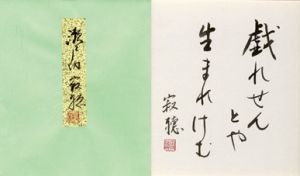 瀬戸内寂聴
戯れせん
とや
生まれけむ
寂聴